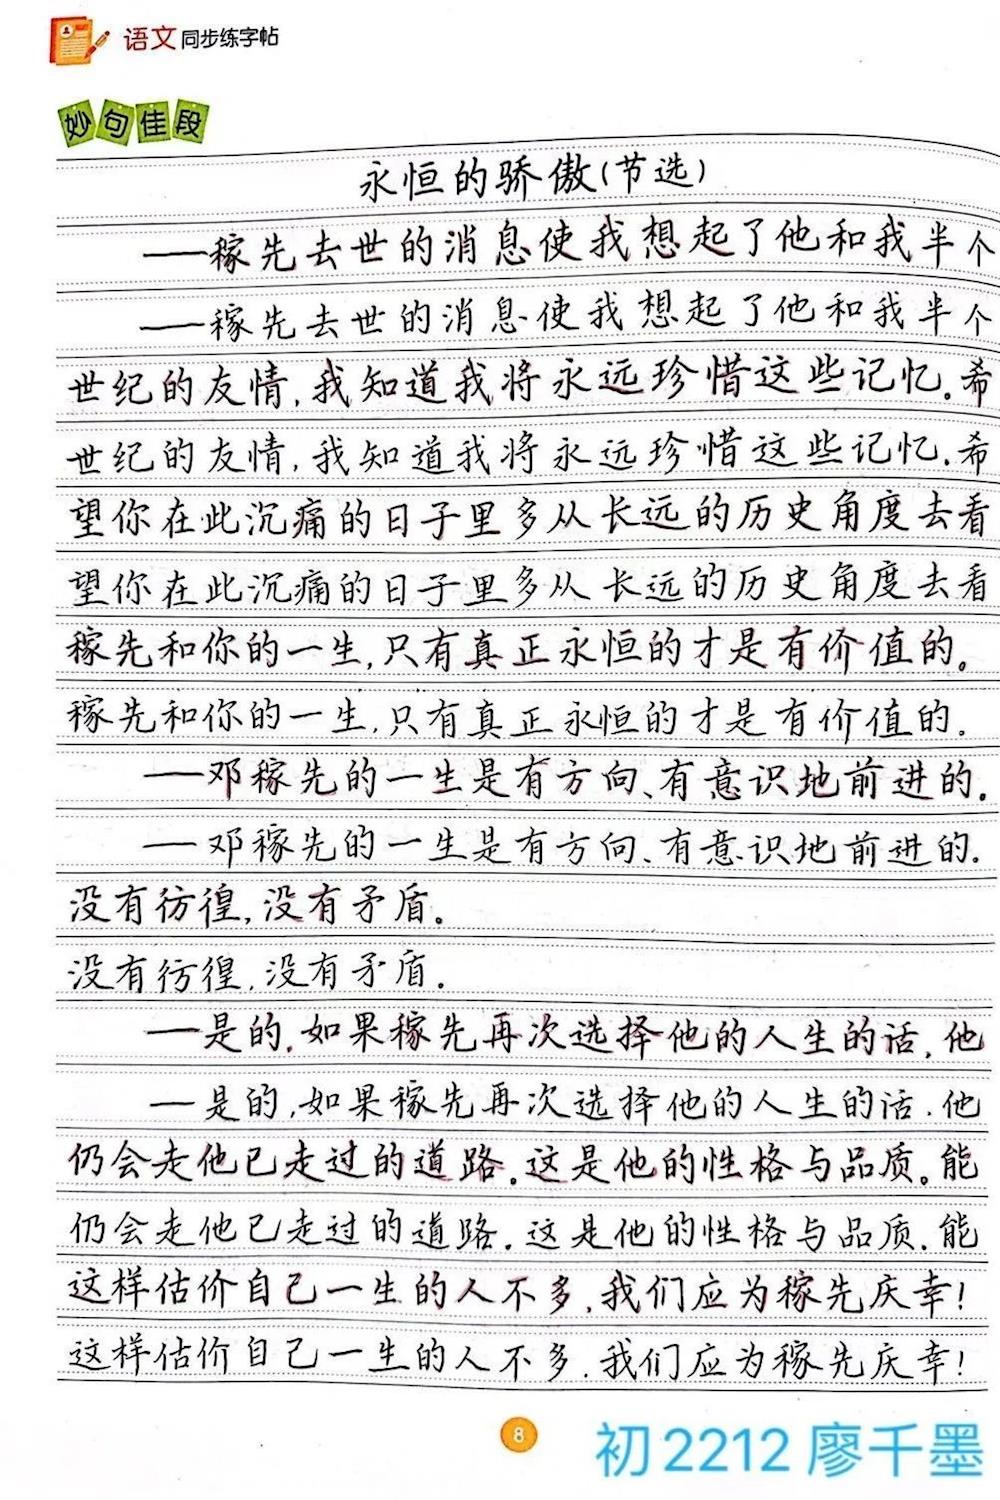 语文同步练字帖
妙句佳段
永恒的骄傲(节选)
——稼先去世的消息使我想起了他和我半个
——稼先去世的消息使我想起了他和我半个
世纪的友情,我知道我将永远珍惜这些记忆。希
世纪的友情,我知道我将永远珍惜这些记忆。希
望你在此沉痛的日子里多从长远的历史角度去看
望你在此沉痛的日子里多从长远的历史角度去看
稼先和你的一生,只有真正永恒的才是有价值的。
稼先和你的一生,只有真正永恒的才是有价值的。
——邓稼先的一生是有方向、有意识地前进的。
——邓稼先的一生是有方向、有意识地前进的。
没有彷徨,没有矛盾。
没有彷徨,没有矛盾。
——是的,如果稼先再次选择他的人生的话,他
——是的,如果稼先再次选择他的人生的话,他
仍会走他已走过的道路。这是他的性格与品质。能
仍会走他已走过的道路。这是他的性格与品质。能
这样估价自己一生的人不多,我们应为稼先庆幸!
这样估价自己一生的人不多,我们应为稼先庆幸!
8
初2212廖千墨